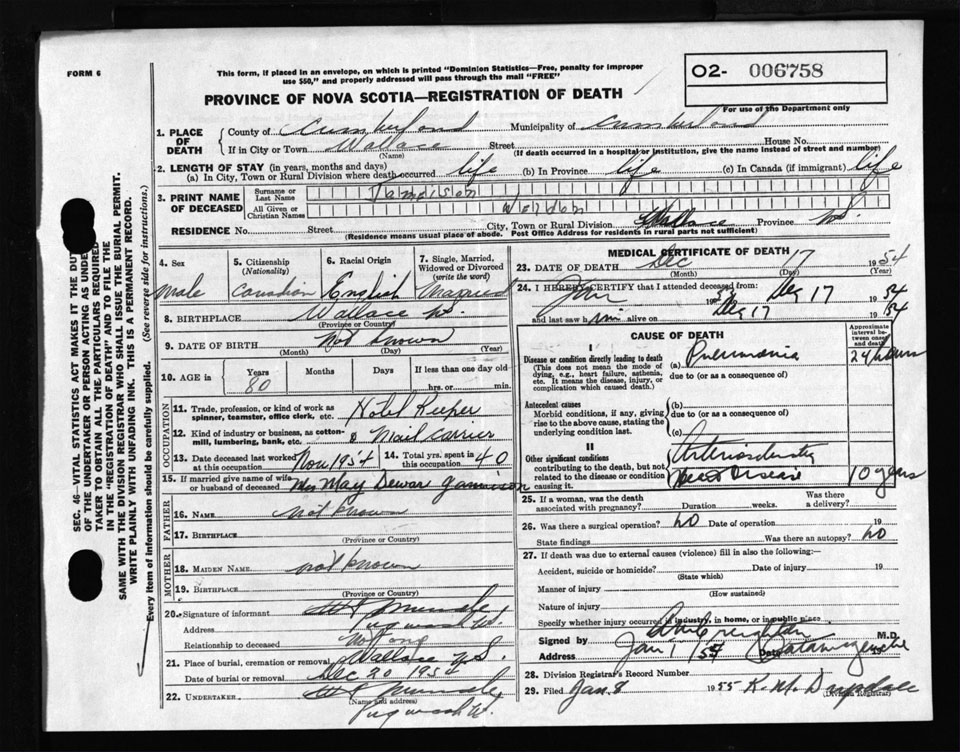 FORM 6
This form, if placed in an envelope, on which is printed "Dominion Statistics—Free, penalty for improper
use $50," and properly addressed will pass through the mail "FREE"
O2- 006758
For use of the Department only
PROVINCE OF NOVA SCOTIA—REGISTRATION OF DEATH
1. PLACE OF DEATH
County of Cumberland Municipality of Cumberland
If in City or Town Wallace Street House No.
(Name) (If death occurred in a hospital or institution, give the name instead of street and number)
2. LENGTH OF STAY (in years, months and days)
(a) In City, Town or Rural Division where death occurred life (b) In Province life (c) In Canada (if immigrant) life
3. PRINT NAME OF DECEASED
Surname or Last Name Jamieson
All Given or Christian Names Worden
RESIDENCE No. Street City, Town or Rural Division Wallace Province N.S.
(Residence means usual place of abode. Post Office Address for residents in rural parts not sufficient)
SEC. 46—VITAL STATISTICS ACT MAKES IT THE DUTY
OF THE UNDERTAKER OR PERSON ACTING AS UNDER
TAKER TO OBTAIN ALL THE PARTICULARS REQUIRED
IN THE "REGISTRATION OF DEATH" AND TO FILE THE
SAME WITH THE DIVISION REGISTRAR WHO SHALL ISSUE THE BURIAL PERMIT.
WRITE PLAINLY WITH UNFADING INK. THIS IS A PERMANENT RECORD.
Every item of information should be carefully supplied. (See reverse side for instructions.)
4. Sex male
5. Citizenship (Nationality) Canadian
6. Racial Origin English
7. Single, Married, Widowed or Divorced (write the word) Married
8. BIRTHPLACE Wallace N.S.
(Province or Country)
9. DATE OF BIRTH Not Known
(Month) (Day) (Year)
10. AGE in Years 80 Months Days If less than one day old
hrs. or min.
OCCUPATION
11. Trade, profession, or kind of work as spinner, teamster, office clerk, etc. Hotel Keeper
12. Kind of industry or business, as cotton-mill, lumbering, bank, etc. & Mail carrier
13. Date deceased last worked at this occupation Nov 1954 14. Total yrs. spent in this occupation 40
15. If married give name of wife or husband of deceased Mrs May Dewar Jamieson
FATHER
16. NAME not Known
17. BIRTHPLACE
(Province or Country)
MOTHER
18. MAIDEN NAME not known
19. BIRTHPLACE
(Province or Country)
20. Signature of informant
Address Pugwash
Relationship to deceased
21. Place of burial, cremation or removal Wallace N.S.
Date of burial or removal Dec 20 1954
22. UNDERTAKER
(Name and address)
Pugwash
MEDICAL CERTIFICATE OF DEATH
23. DATE OF DEATH Dec 17 1954
(Month) (Day) (Year)
24. I HEREBY CERTIFY that I attended deceased from:
Dec 17 1954
and last saw him alive on Dec 17 1954
CAUSE OF DEATH
Approximate interval between onset and death
I
Disease or condition directly leading to death
(This does not mean the mode of dying, e.g., heart failure, asthenia, etc. It means the disease, injury, or complication which caused death.)
(a) Pneumonia 24 hours
due to (or as a consequence of)
Antecedent causes
Morbid conditions, if any, giving rise to the above cause, stating the underlying condition last.
(b)
due to (or as a consequence of)
(c)
II
Other significant conditions
contributing to the death, but not related to the disease or condition causing it.
Heart Disease 10 years
25. If a woman, was the death associated with pregnancy? Duration weeks. Was there a delivery?
26. Was there surgical operation? No Date of operation 19
State findings Was there an autopsy? no
27. If death was due to external causes (violence) fill in also the following:—
Accident, suicide or homicide? Date of injury 19
(State which)
Manner of injury
(How sustained)
Nature of injury
Specify whether injury occurred in industry, in home, or in public place.
Signed by Creighton M.D.
Address Tatamagouche Date Jan 1/55 19
28. Division Registrar's Record Number
29. Filed Jan. 8 1955 K. M. Drysdale
(Division Registrar)